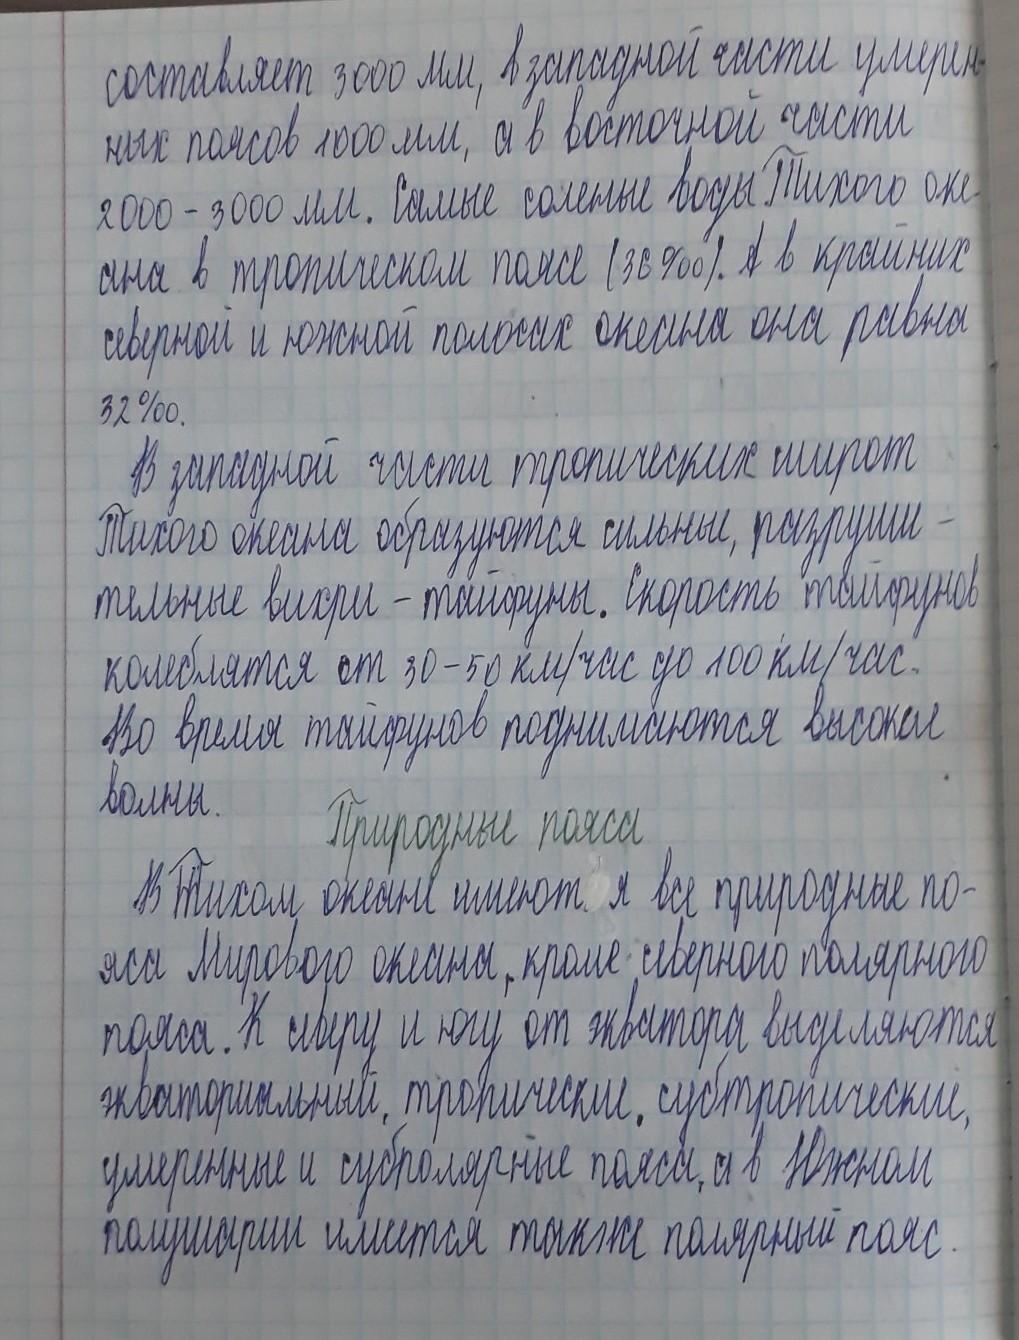 составляет 3000 мм, в западной части умерен-
ных поясов 1000 мм, а в восточной части
2000 - 3000 мм. Самые соленые воды Тихого оке-
ана в тропическом поясе (36‰). А в крайних
северной и южной полосах океана она равна
32‰.
В западной части тропических широт
Тихого океана образуются сильные, разруши -
тельные вихри - тайфуны. Скорость тайфунов
колеблятся от 30-50 км/час до 100 км/час.
Во время тайфунов поднимаются высокие
волны.
Природные пояса
В Тихом океане имеют я все природные по-
яса Мирового океана, кроме северного полярного
пояса. К северу и югу от экватора выделяются
экваториальный, тропические, субтропические,
умеренные и субполярные пояса, а в Южном
полушарии имеется также полярный пояс.